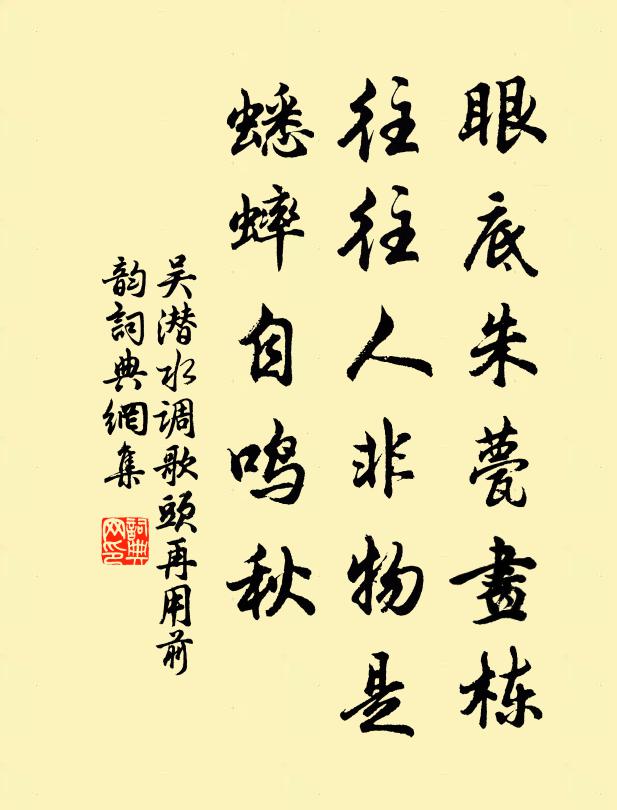 眼底朱甍畫栋
往往人非物是
蟋蟀自鸣秋
吴潜水调歌頭再用前
韵词典網集
詞典
网印